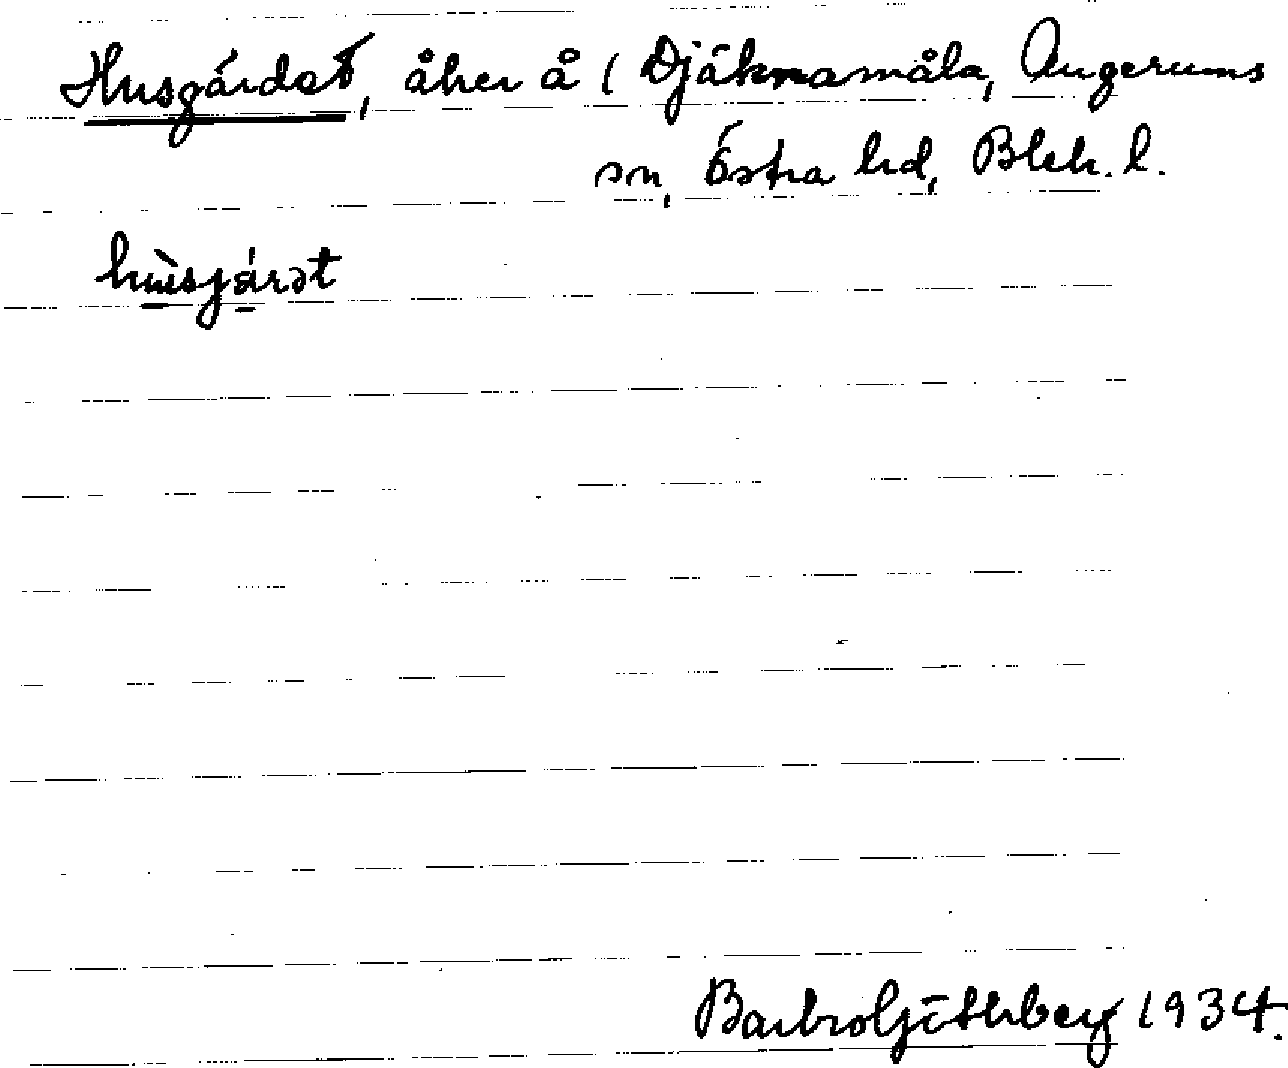 Husgärdet, åker å 1 Djäknamåla, Augerums
sn, Östra hd, Blek. l.
hùsjárət
Barbro Götherberg 1934.